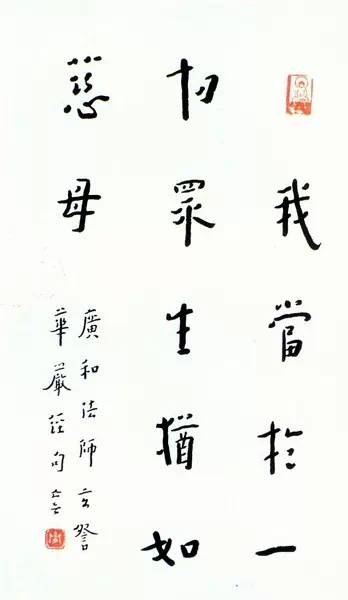 我當於一
切眾生猶如
慈母
廣和法師玄詧
華嚴經句